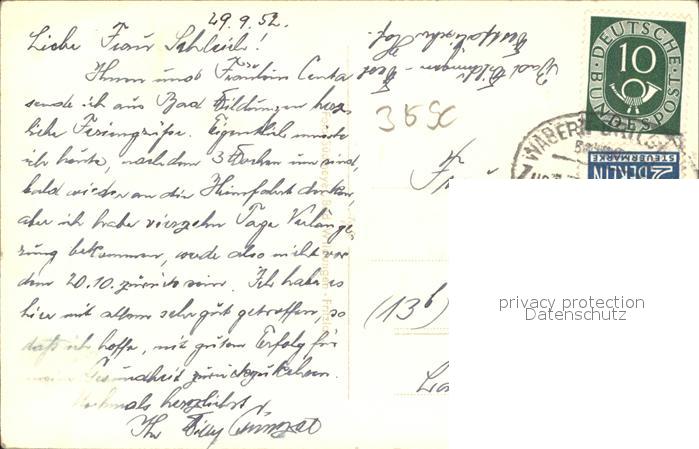 29.9.52.
Liebe Frau
Ihnen und Fräulein Centa
sende ich aus Bad Wildungen herz-
liche Feriengrüße. Eigentlich müsste
ich heute, nachdem 3 Wochen um sind,
bald wieder an die Heimfahrt denken,
aber ich habe vierzehn Tage Verlänge-
rung bekommen, werde also nicht vor
dem 20.10. zurück sein. Ich habe es
hier mit allem sehr gut getroffen, so
daß ich hoffe, mit gutem Erfolg für
meine Gesundheit zurückzukehren.
Nochmals herzlichst
Ihr Willy
Bad Wildungen - West
Westfälischer Hof.
35 SC
DEUTSCHE
BUNDESPOST
10
WABERN
2 BERLIN
STEUERMARKE
(13b)
privacy protection
Datenschutz